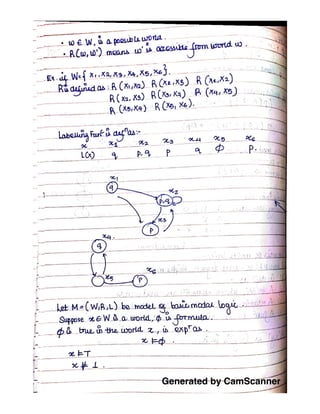 • w ∈ W, is a possible world.
• R(w,w') means w' is accessible from world w.
Ex. if W = { x1, x2, x3, x4, x5, x6 }.
R is defined as : R(x1,x2) R(x1,x3) R(x2,x2)
R(x2,x3) R(x3,x2) R(x4,x5)
R(x5,x4) R(x5,x6).
Labelling funⁿ is defⁿ as :-
x x1 x2 x3 x4 x5 x6
L(x) q p,q p q ϕ p.
x1
q
x2
p,q
x3
p
x4.
q
x5
x6
p
Let M = (W,R,L) be model of basic modal logic.
Suppose x ∈ W is a world, ϕ is formula.
ϕ is true in the world x, is expⁿ as
x ⊨ ϕ.
x ⊨ T
x ⊭ ⊥.
Generated by CamScanner